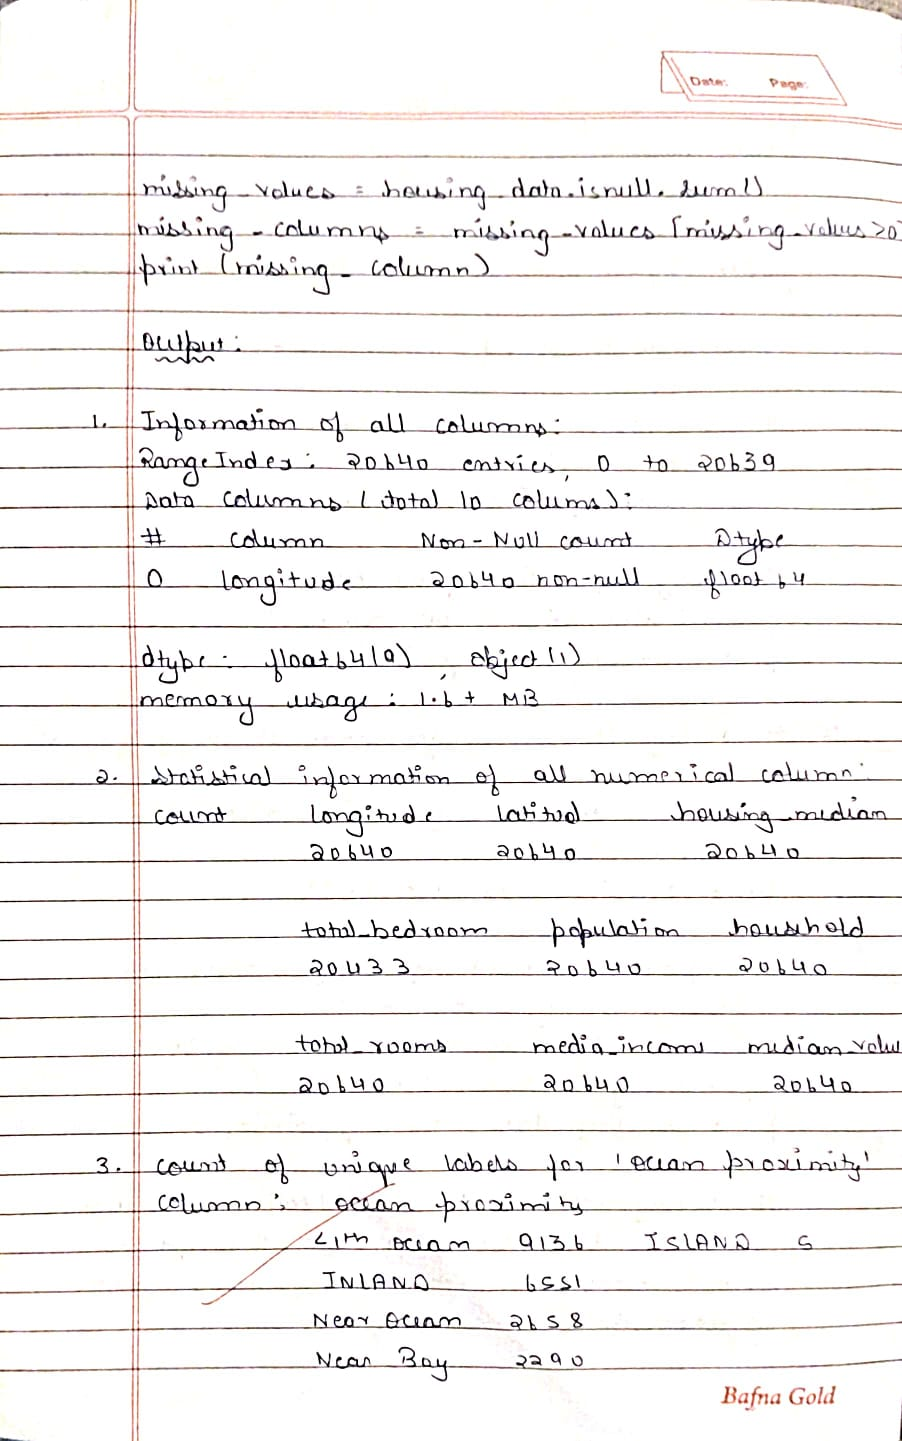 Date: Page:
missing_values = housing_data.isnull.sum()
missing_columns = missing_values [missing_values >0]
print (missing_column)
Output:
1. Information of all columns:
RangeIndex: 20640 entries, 0 to 20639
Data columns (total 10 colums):
# column Non-Null count Dtype
0 longitude 20640 non-null float64
dtype: float64(9), object(1)
memory usage: 1.6+ MB
2. Statistical information of all numerical column:
count longitude latitud housing_median
20640 20640 20640
total_bedroom population household
20433 20640 20640
total_rooms media_incom median_valu
20640 20640 20640
3. count of unique labels for 'ocean proximity'
column: ocean proximity
<1th ocean 9136 ISLAND 5
INLAND 6551
Near Ocean 2658
Near Bay 2290
Bafna Gold